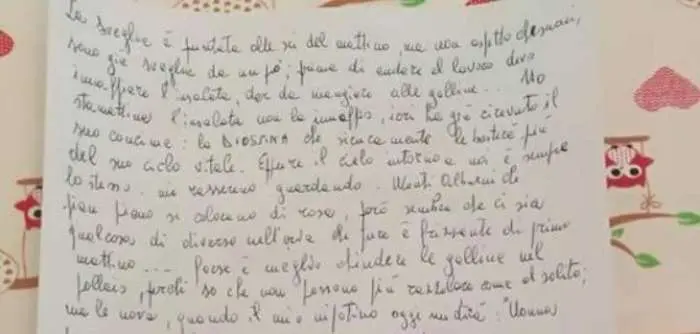 La sveglia è puntata alle sei del mattino, ma non aspetto
sono già sveglia da un po'; prima di andare al lavoro devo
innaffiare l'insalata, dar da mangiare alle galline... No
stamattina l'insalata non la innaffio, ieri ha già ricevuto il
suo concime: la DIOSSINA che sicuramente le basterà più
del suo ciclo vitale. Eppure il cielo intorno a noi è sempre
lo stesso. mi rassereno guardando i Monti Albani che
pian piano si colorano di rosa, però sembra che ci sia
qualcosa di diverso nell'aria che pure è frizzante di primo
mattino... Forse è meglio chiudere le galline nel
pollaio, perché so che non possono più razzolare come al solito;
ma le uova, quando il mio nipotino oggi mi dirà: "Nonna